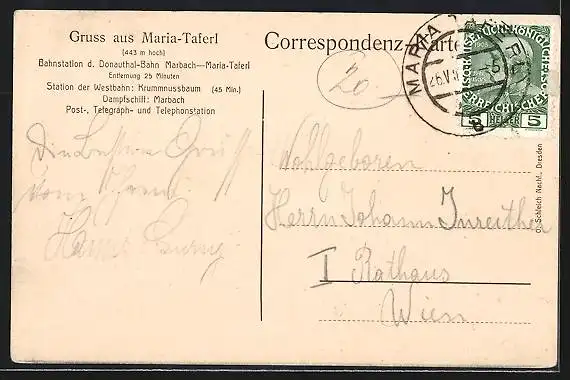 Gruss aus Maria-Taferl
(443 m hoch)
Bahnstation d. Donauthal-Bahn Marbach—Maria-Taferl
Entfernung 25 Minuten
Station der Westbahn: Krummnussbaum (45 Min.)
Dampfschiff: Marbach
Post-, Telegraph- und Telephonstation
Correspondenz-Karte
20
MARIA TAFERL
5 HELLER 5
Die besten Grüße
vom
Wohlgeboren
Herrn Johann
I Rathaus
Wien
Schleich Nachf., Dresden